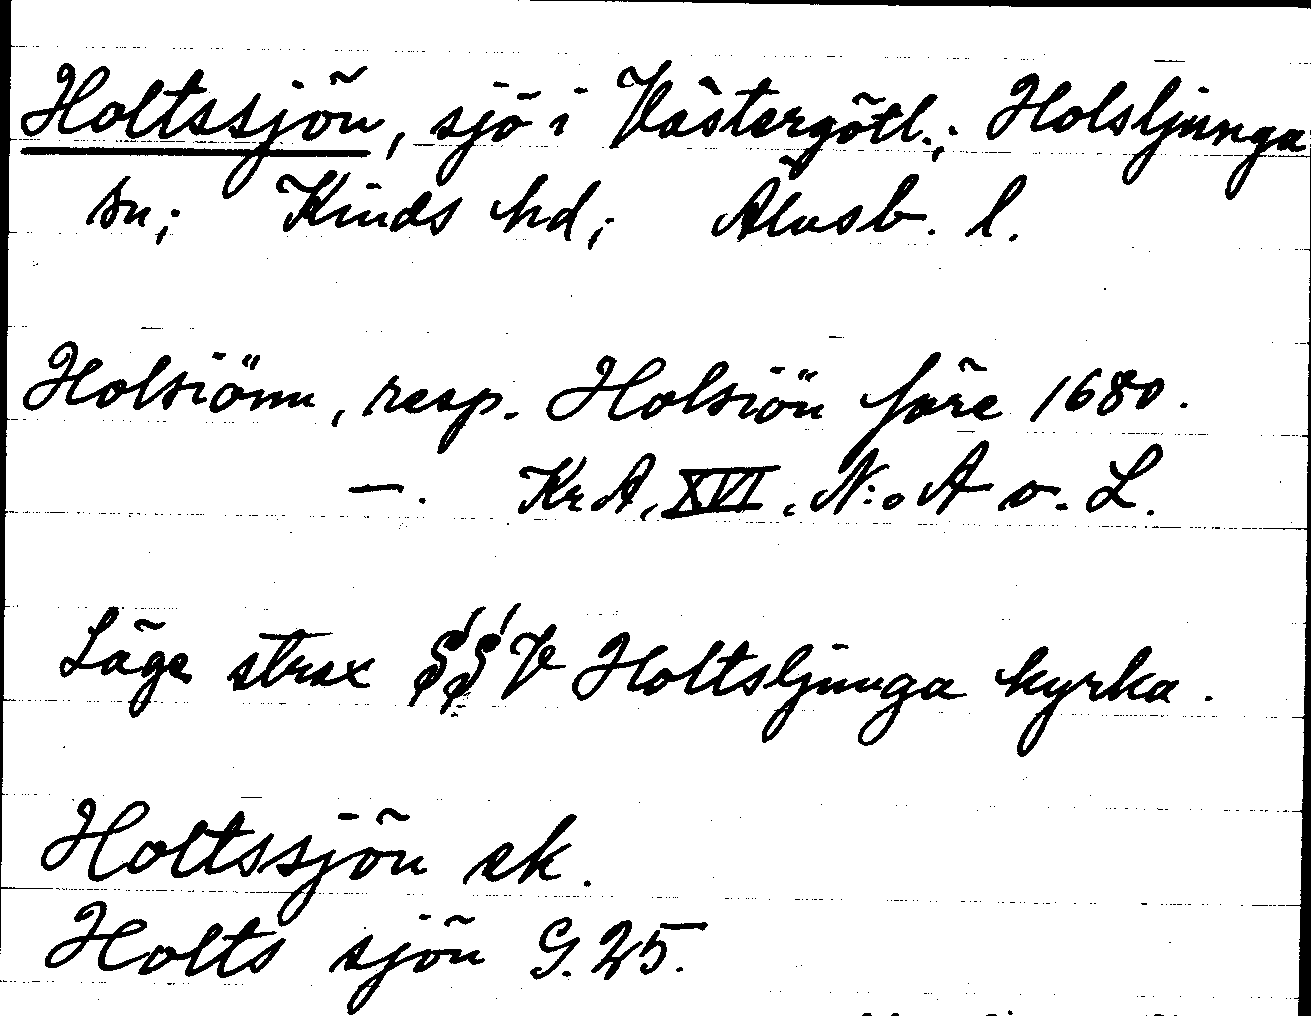 Holtssjön, sjö i Västergötl.; Holsljunga
sn; Kinds hd; Älvsb. l.
Holsiönn, resp. Holsiön före 1680.
—. KrA, XVI. N:o A o. L.
Läge strax V Holtsljunga kyrka.
Holtssjön ek.
Holts sjön G. 25.